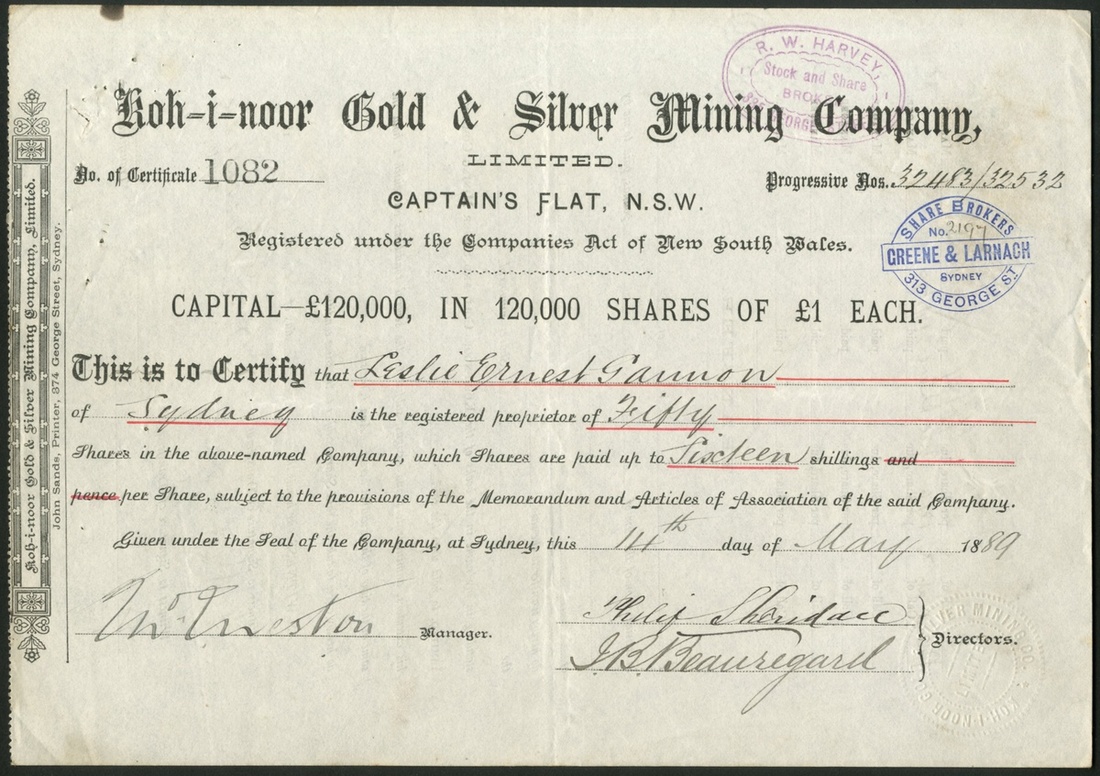 R. W. HARVEY,
Stock and Share
BROKER
GEORGE
Koh-i-noor Gold & Silver Mining Company,
LIMITED.
No. of Certificate 1082
Progressive Nos. 32483/32532
CAPTAIN'S FLAT, N.S.W.
SHARE BROKERS
No. 2197
GREENE & LARNACH
SYDNEY
313 GEORGE ST
Registered under the Companies Act of New South Wales.
CAPITAL—£120,000, IN 120,000 SHARES OF £1 EACH.
This is to Certify that Leslie Ernest Gannon
of Sydney is the registered proprietor of Fifty
Shares in the above-named Company, which Shares are paid up to Sixteen shillings and
pence per Share, subject to the provisions of the Memorandum and Articles of Association of the said Company.
Given under the Seal of the Company, at Sydney, this 14th day of May 1889
Manager.
Philip Sheridan
J.B. Beauregard
Directors.
SILVER MINING CO.
LIMITED
KOH-I-NOOR
Koh-i-noor Gold & Silver Mining Company, Limited.
John Sands, Printer, 374 George Street, Sydney.